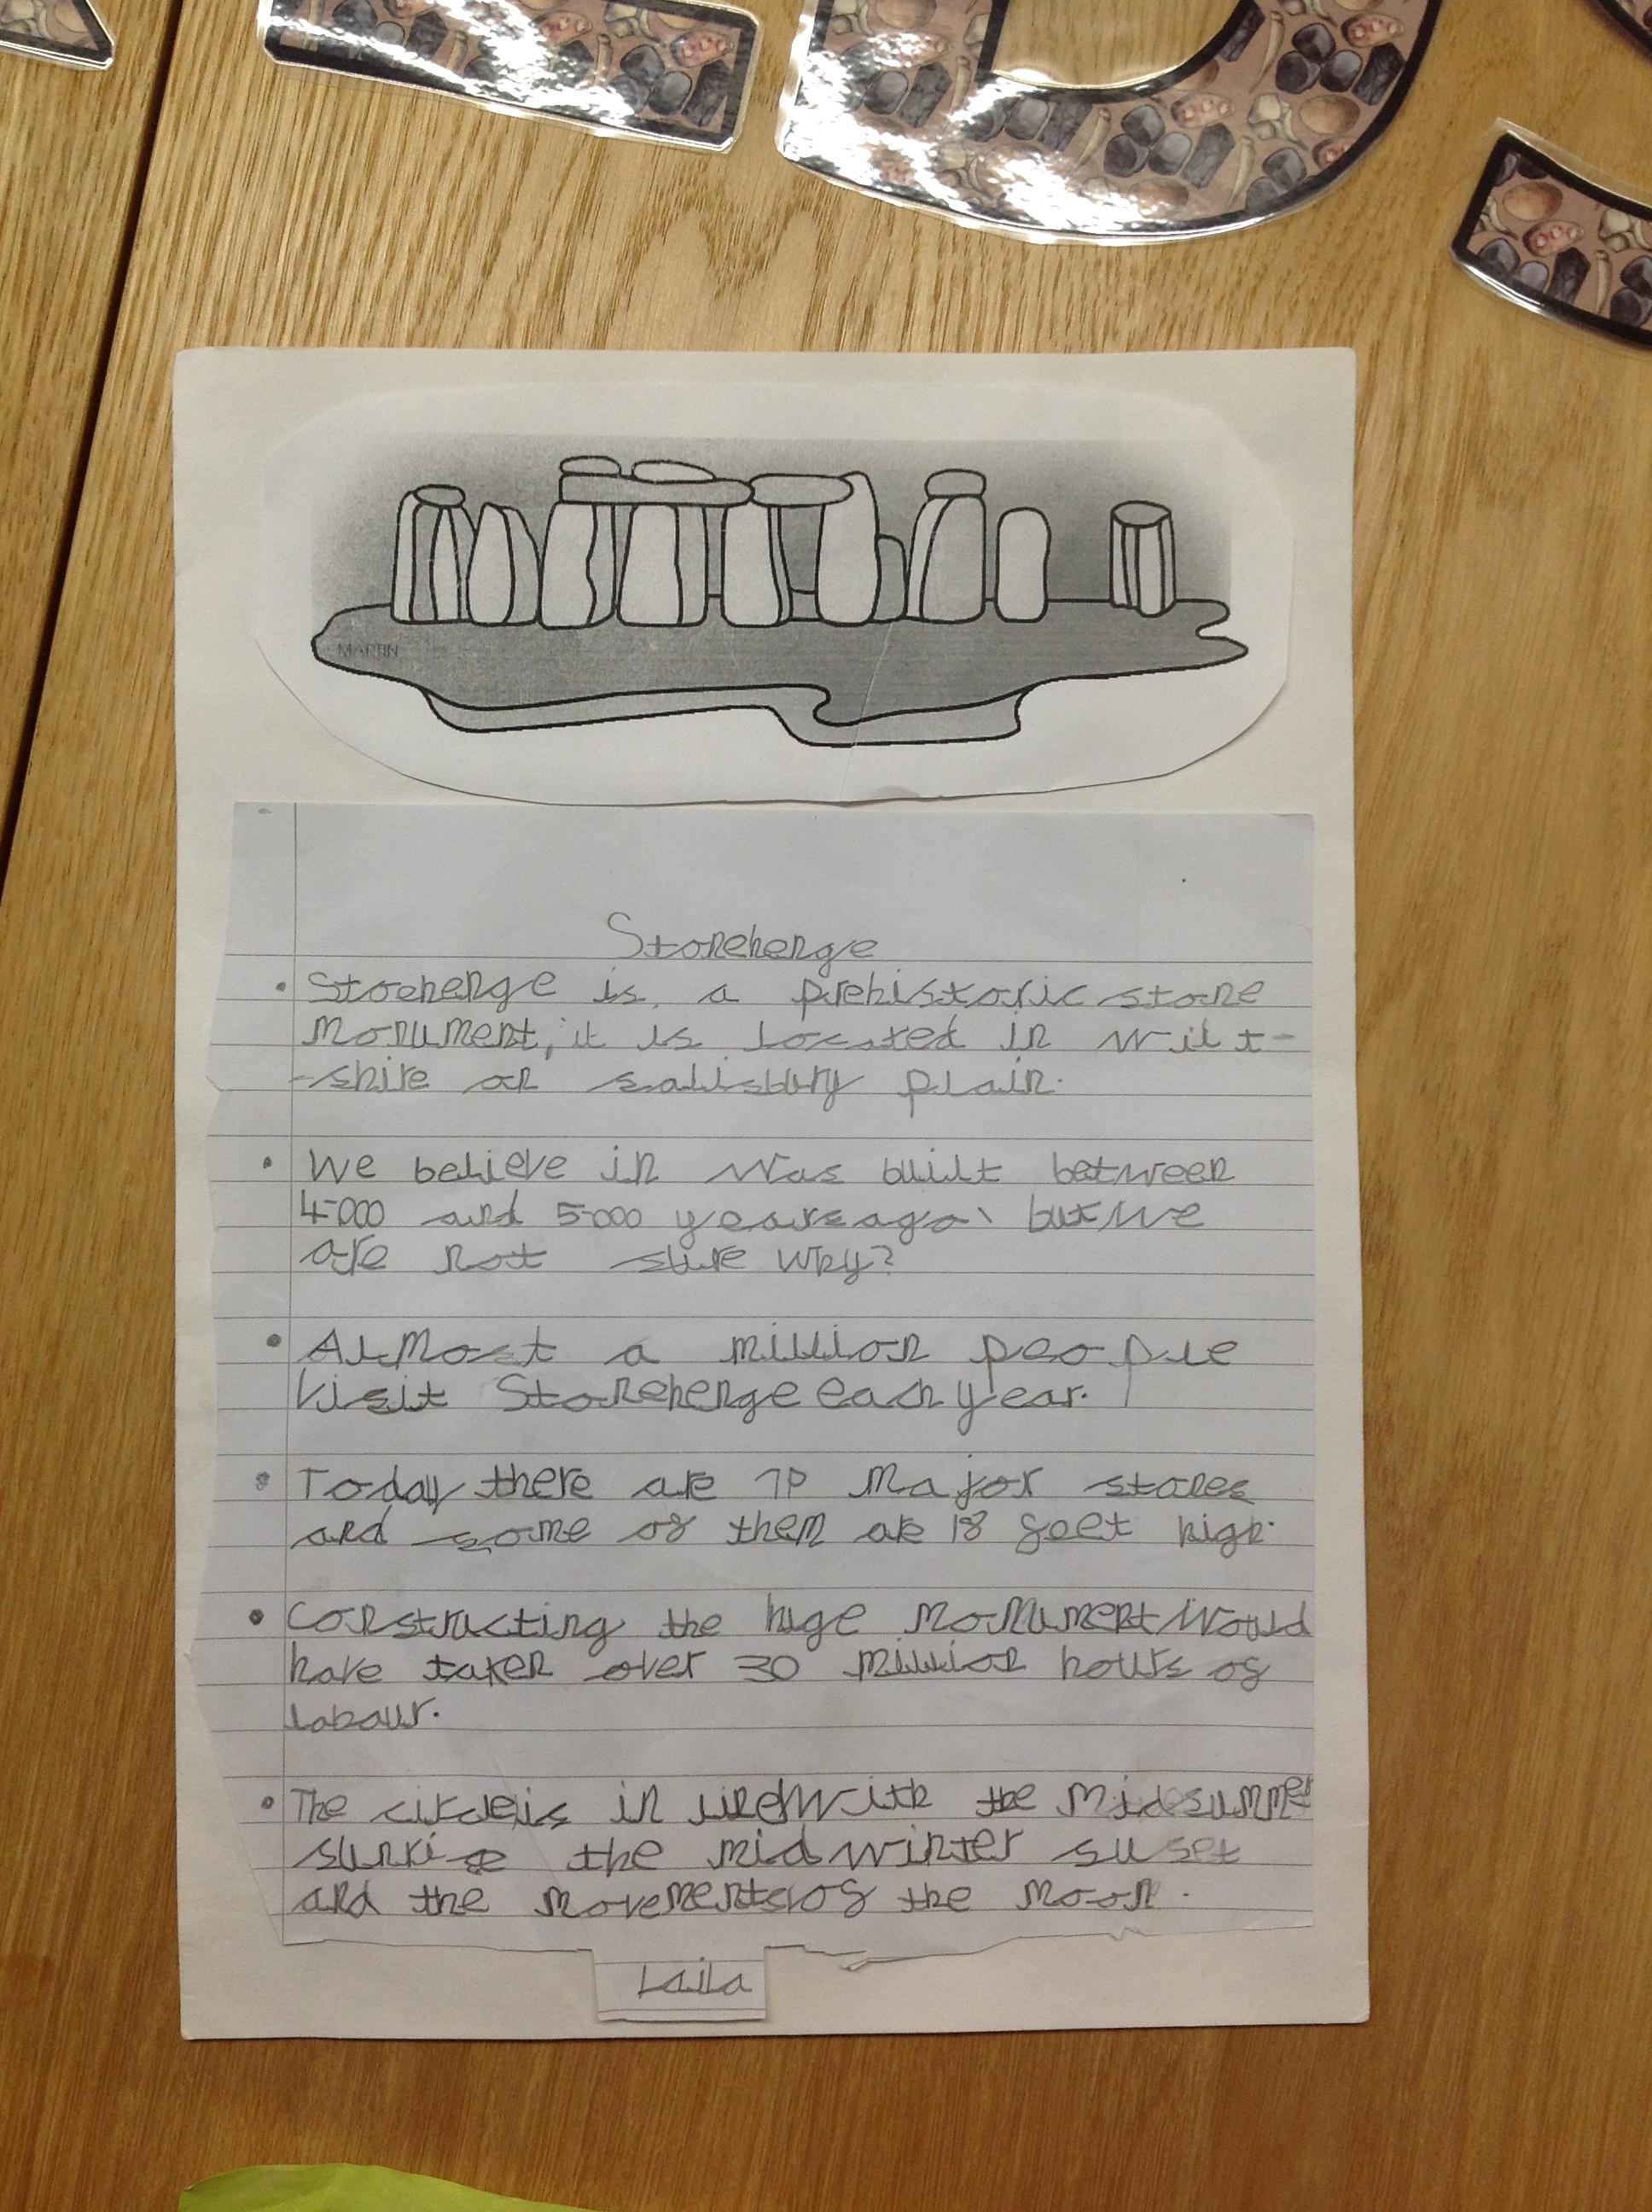 D
MARTIN
Stonehenge
• Stoehenge is a prehistoric stone
monument, it is located in wilt-
-shire on salisbury plain.
• We believe in was built between
4000 and 5000 years ago, but we
are not sure why?
• Almost a million people
visit Stonehenge each year.
• Today there are 70 major stones
and some of them are 18 feet high.
• Constructing the huge monument would
have taken over 30 million hours of
labour.
• The circle is in lined with the midsummer
sunrise the mid winter suset
and the movements of the moon.
Laila